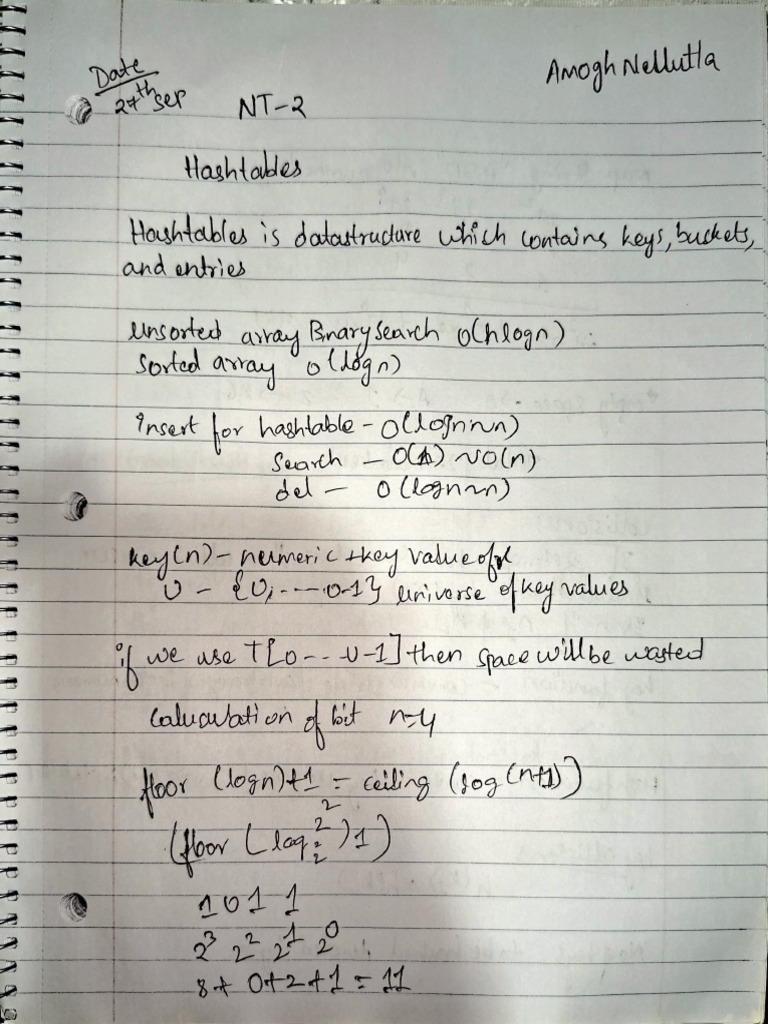 Amogh Nellutla
Date
27th Sep
NT-2
Hashtables
Hashtables is datastructure which contains keys, buckets,
and entries
unsorted array Bnary search O(nlogn)
Sorted array O(logn)
insert for hashtable - O(logn~n)
Search - O(1) ~O(n)
del - O(logn~n)
key(n) - numeric key value of x
U - {0, ---- U-1} universe of key values
if we use T[0 -- - U-1] then space will be wasted
Caluculation of bit n=4
floor (logn)+1 = ceiling (log(n+1))
(floor (log 2 2 )1)
1 0 1 1
2^3 2^2 2^1 2^0
8+ 0+2+1 = 11